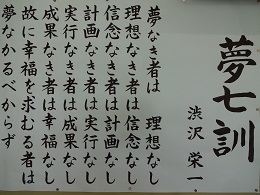 夢七訓
渋沢 栄一
夢なき者は 理想なし
理想なき者は信念なし
信念なき者は計画なし
計画なき者は実行なし
実行なき者は成果なし
成果なき者は幸福なし
故に幸福を求むる者は
夢なかるべからず